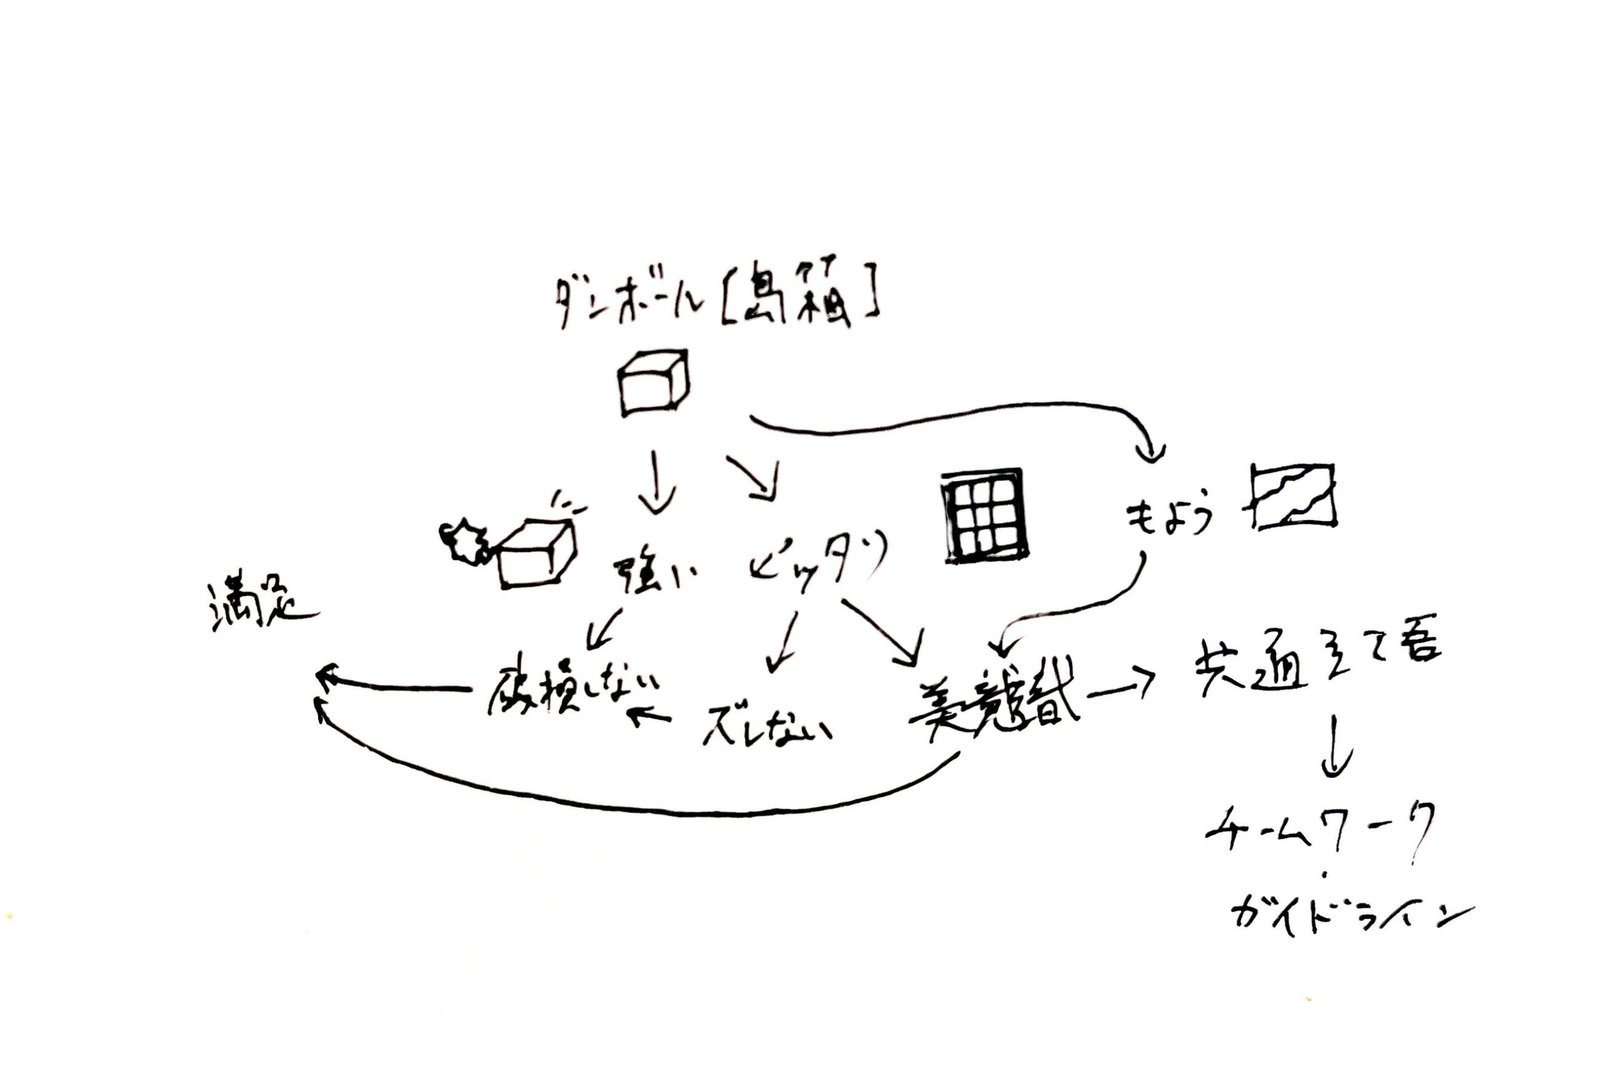 ダンボール[島箱]
もよう
強い
ピッタリ
満足
破損しない
ズレない
美意識
共通言語
チームワーク
・
ガイドライン